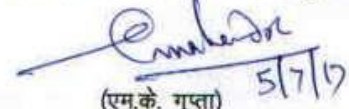 5/7/17
(एम.के. गुप्ता)